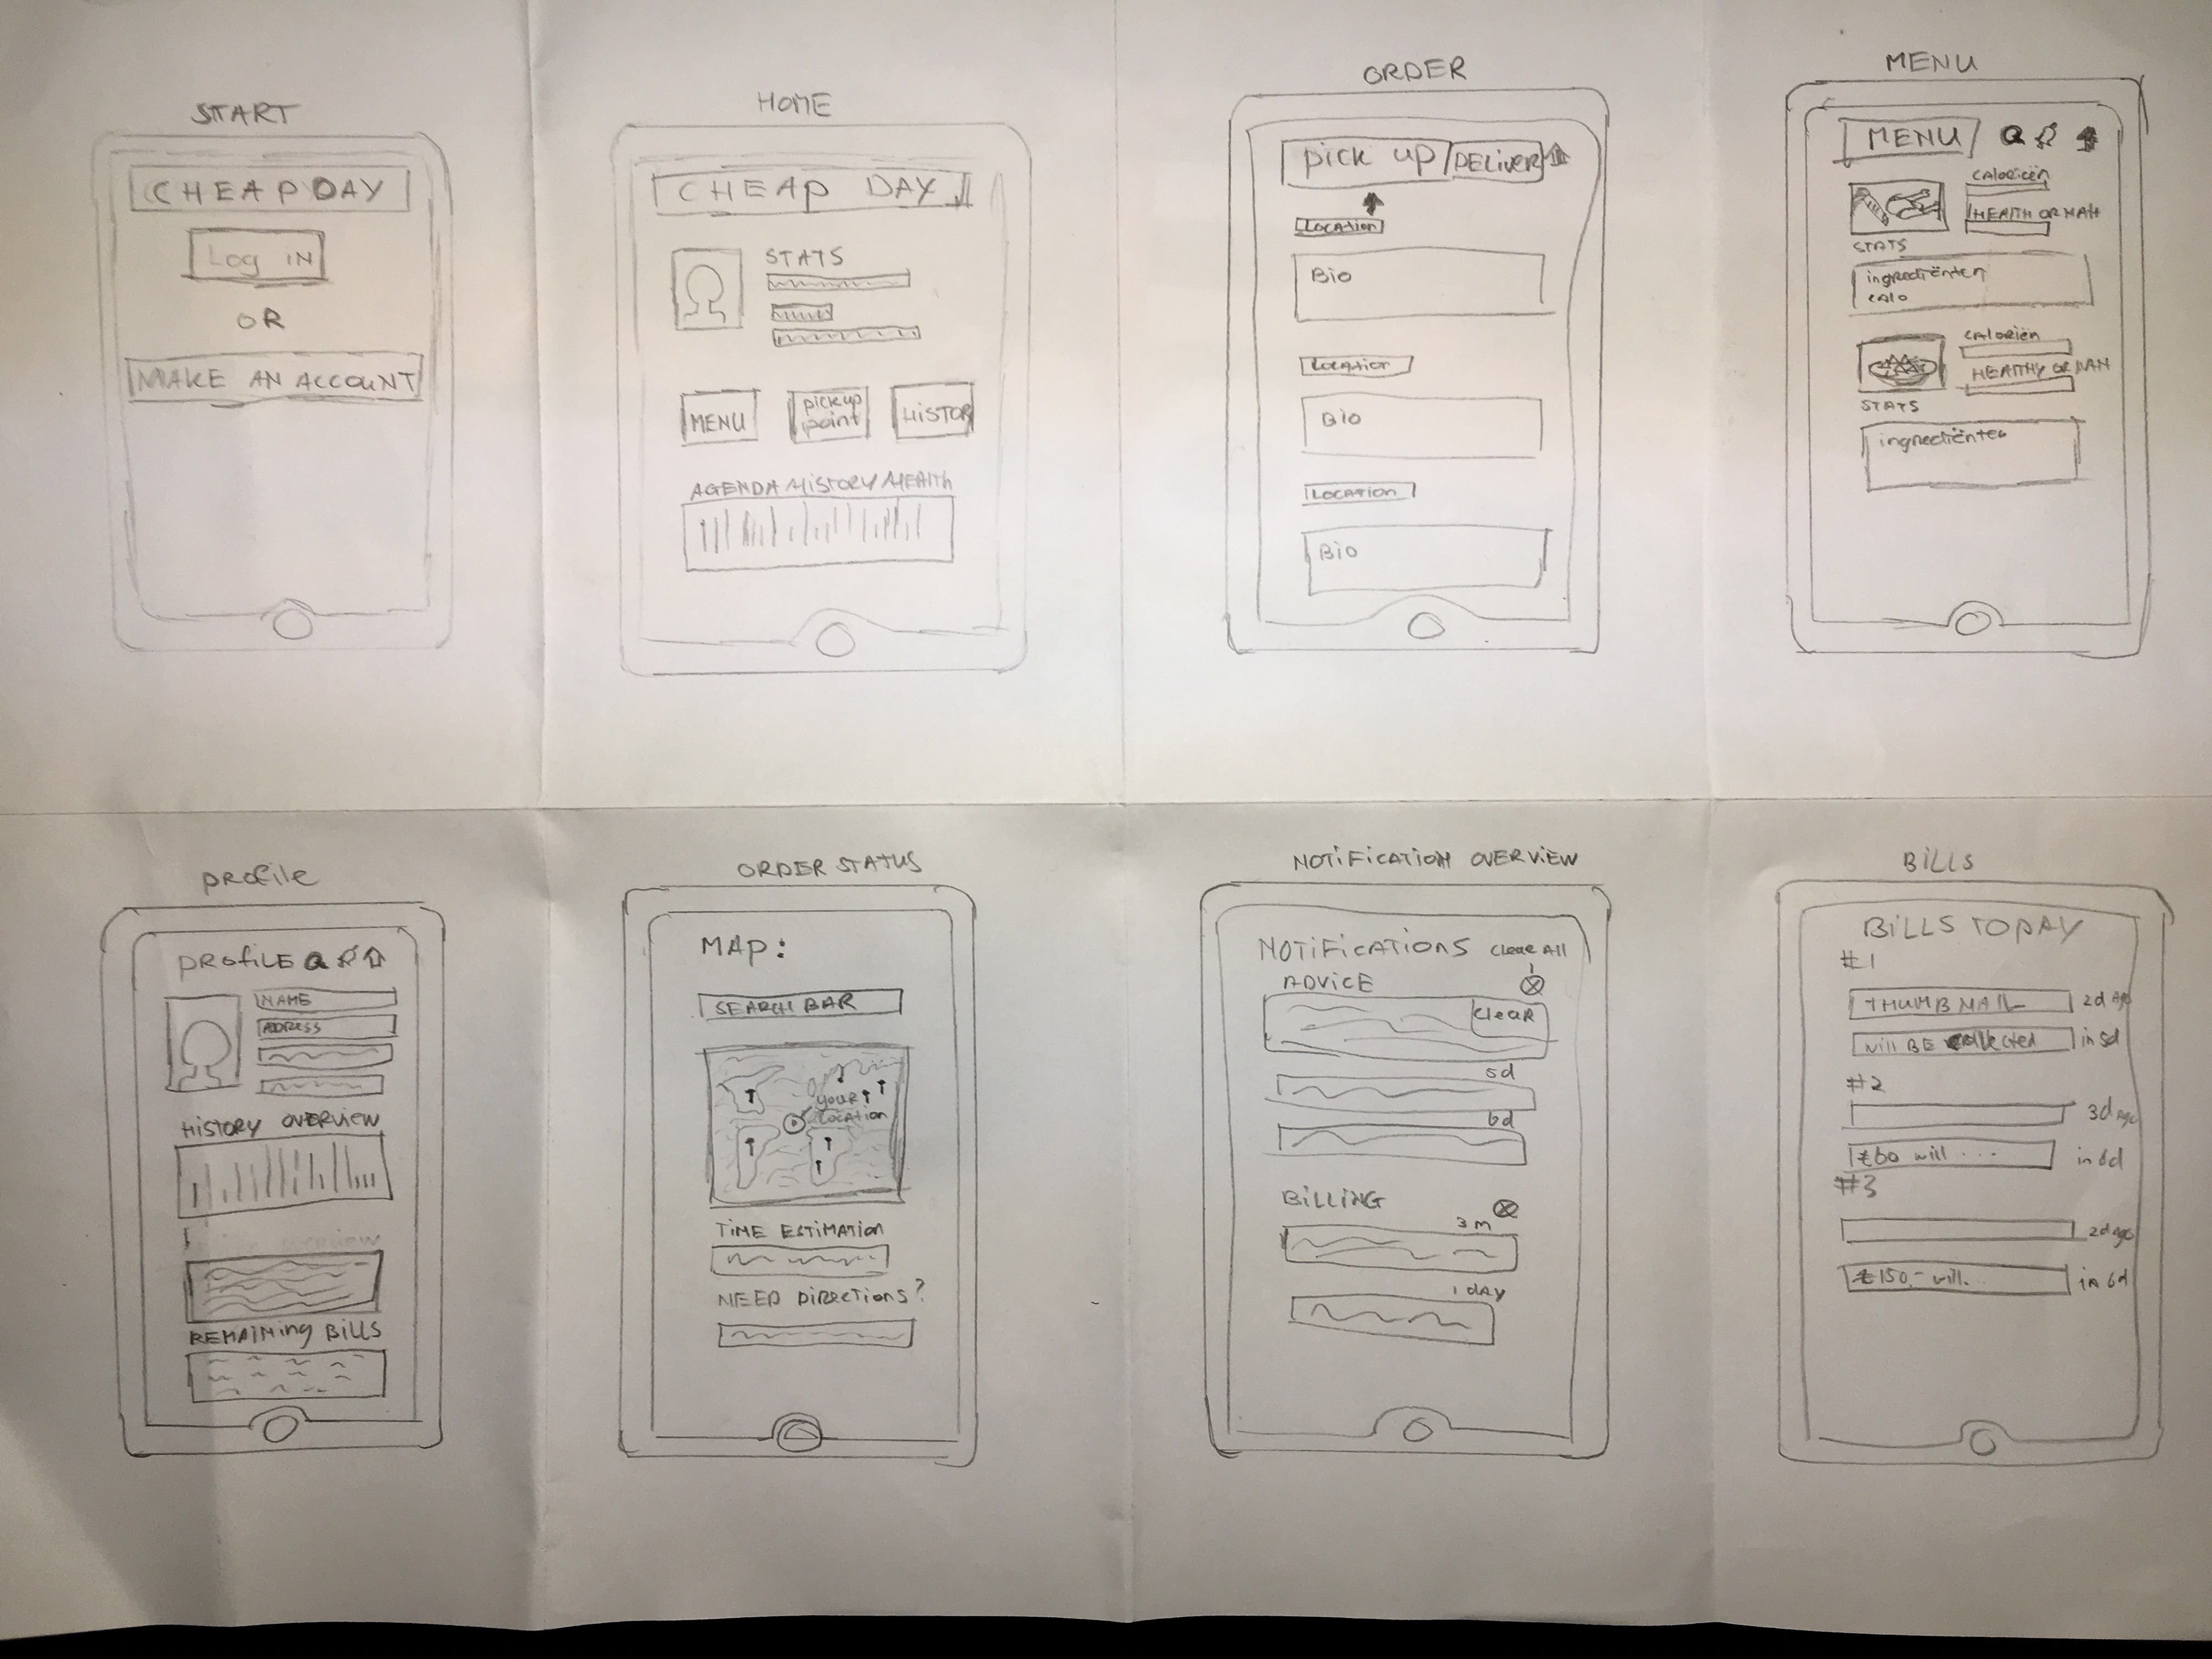 START
CHEAP DAY
Log IN
OR
MAKE AN ACCOUNT
HOME
CHEAP DAY
STATS
MENU
pickup
point
HISTOR
AGENDA HISTORY HEALTH
ORDER
pick up / DELIVER
LOCATION
Bio
LOCATION
Bio
LOCATION
Bio
MENU
MENU
CALORIEËN
HEALTH OR NAH
STATS
ingrediënten
CALO
CALORIËN
HEALTHY OR NAH
STATS
ingrediënten
PROFILE
PROFILE
NAME
ADDRESS
HISTORY OVERVIEW
REMAINING BILLS
ORDER STATUS
MAP:
SEARCH BAR
YOUR
LOCATION
TIME ESTIMATION
NEED DIRECTIONS?
NOTIFICATION OVERVIEW
NOTIFICATIONS Clear All
ADVICE
Clear
5d
6d
BILLING
3 m
1 DAY
BILLS
BILLS TODAY
#1
THUMBNAIL 2d Ago
will BE collected in 5d
#2
3d Ago
€60 will ... in 6d
#3
2d Ago
€150,- will... in 6d